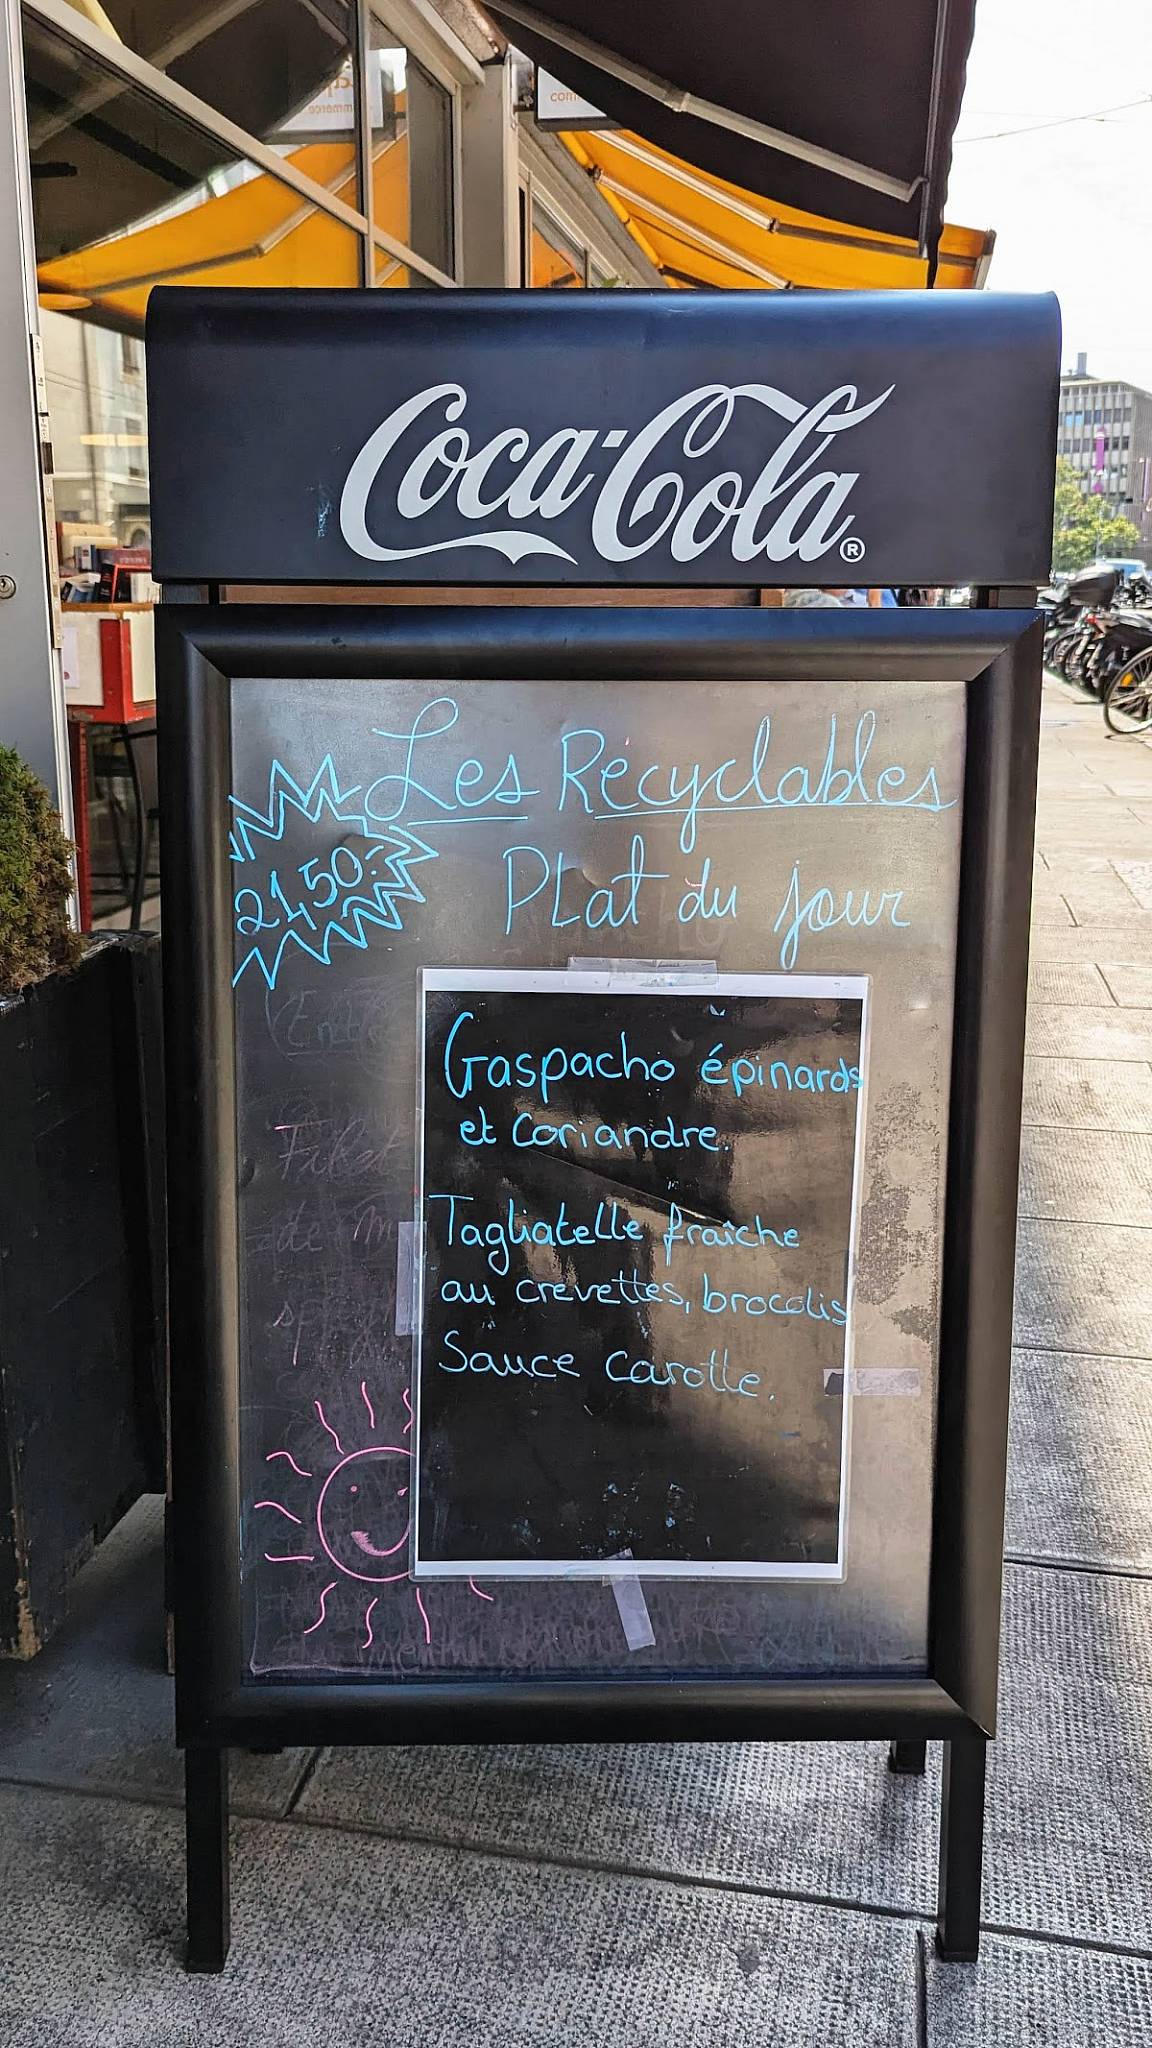 Coca-Cola®
Les Récyclables
21,50.-
PLat du jour
Gaspacho épinards
et Coriandre.
Tagliatelle fraîche
au crevettes, brocolis
Sauce Carotte.
Filet
de m